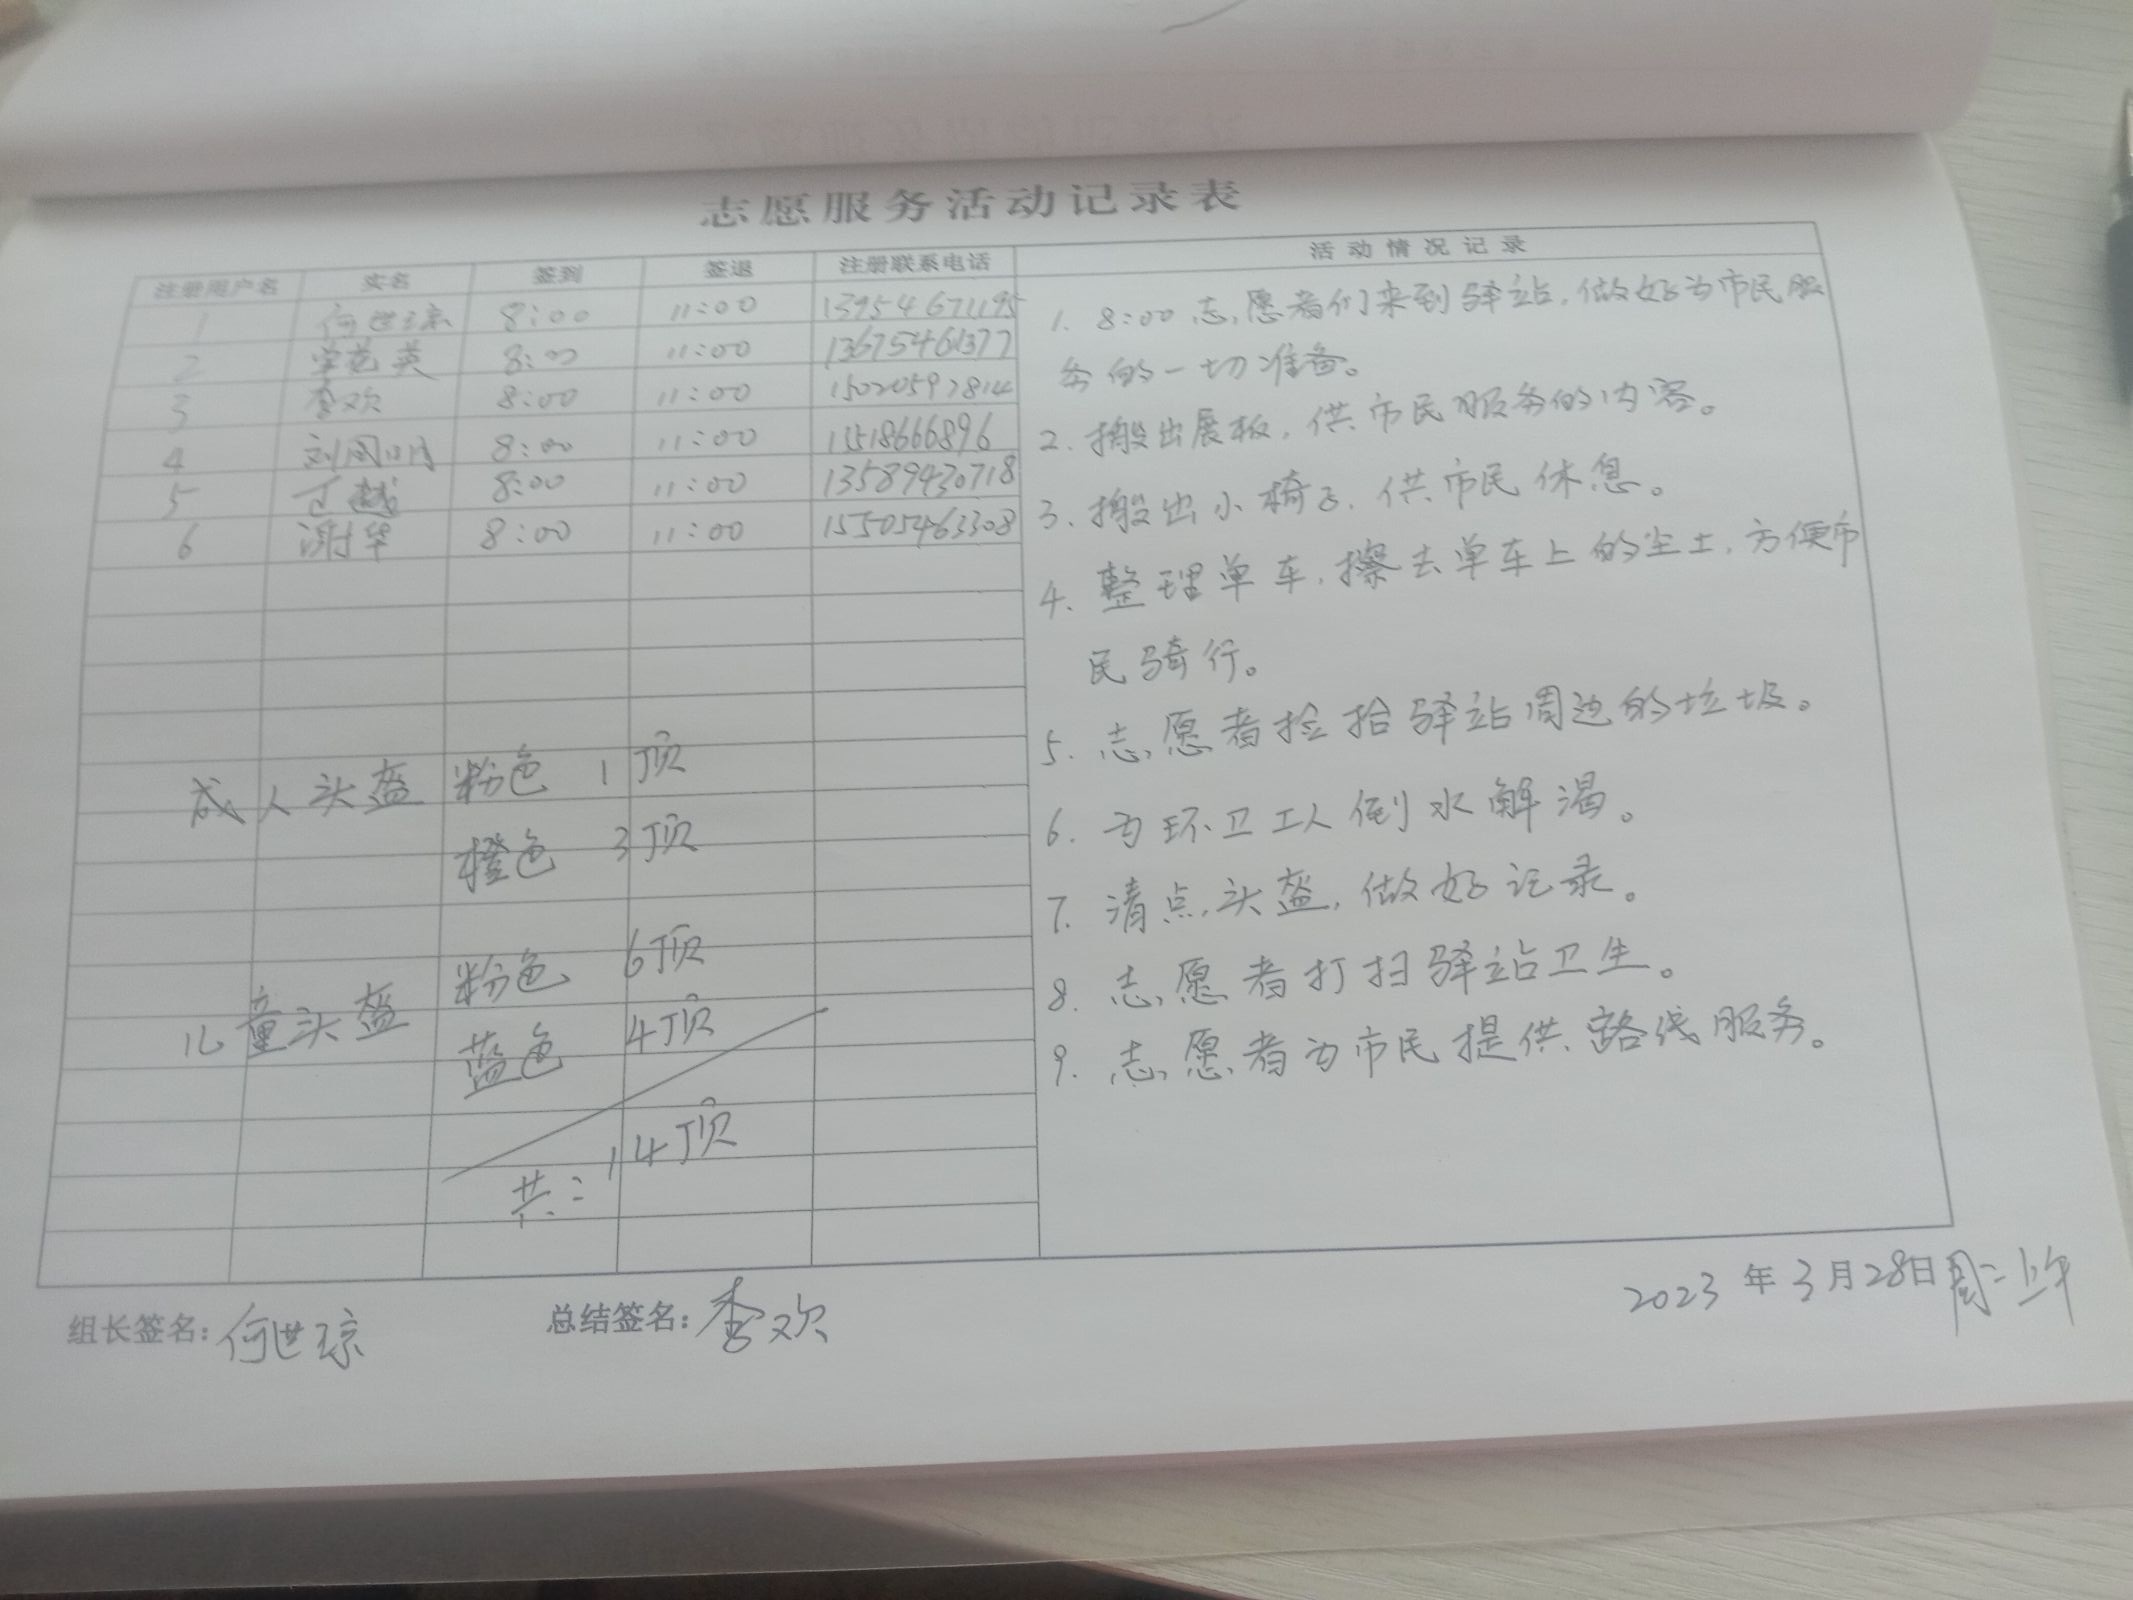 志愿服务活动记录表
注册用户名 实名 签到 签退 注册联系电话 活动情况记录
1 何世琼 8:00 11:00 13954671195
2 英 8:00 11:00 13675461377
3 李欢 8:00 11:00 15020597814
4 刘国明 8:00 11:00 15518666896
5 丁越 8:00 11:00 13589430718
6 谢华 8:00 11:00 15505463308
成人头盔 粉色 1顶
橙色 3顶
粉色 6顶
儿童头盔
蓝色 4顶
共:14顶
1. 8:00志愿者们来到驿站,做好为市民服
务的一切准备。
2. 搬出展板,供市民服务的内容。
3. 搬出小椅子,供市民休息。
4. 整理单车,擦去单车上的尘土,方便市
民骑行。
5. 志愿者捡拾驿站周边的垃圾。
6. 为环卫工人倒水解渴。
7. 清点头盔,做好记录。
8. 志愿者打扫驿站卫生。
9. 志愿者为市民提供路线服务。
组长签名:何世琼 总结签名:李欢 2023年3月28日周二上午